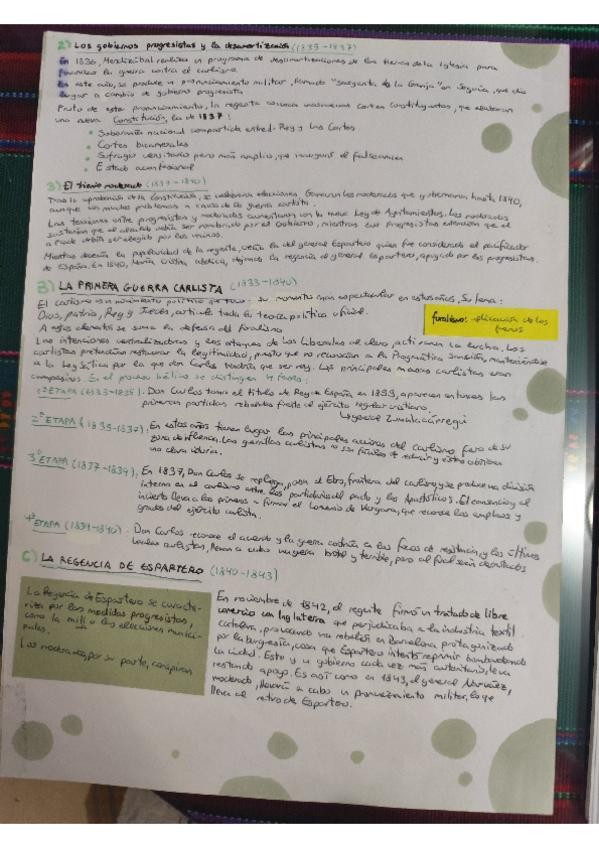 2) Los gobiernos progresistas y la desamortización (1835-1837)
En 1836, Mendizábal realiza un programa de desamortizaciones de las tierras de la Iglesia para
financiar la guerra contra el carlismo.
En este año, se produce un pronunciamiento militar, llamado "sargentos de la Granja" en Segovia, que dio
lugar a cambio de gobierno progresista
Fruto de este pronunciamiento, la regente convoca nuevas cortes constituyentes, que elaboran
una nueva Constitución, la de 1837:
• Soberanía nacional compartida entre Rey y Las Cortes
• Cortes bicamerales
• Sufragio censitario pero más amplio, que
• Estado aconfesional
3) El trienio moderado (1837-1840)
Tras la aprobación de la Constitución, se celebraron elecciones. Ganaron los moderados que gobernaron hasta 1840,
aunque con muchos problemas a causa de la guerra carlista.
Las tensiones entre progresistas y moderados aumentaron con la nueva Ley de Ayuntamientos. Los moderados
sostenían que el alcalde debía ser nombrado por el Gobierno, mientras los progresistas que el
alcalde debía ser elegido por los vecinos.
Mientras decaía la popularidad de la regente, crecía la del general Espartero quien fue considerado el pacificador
de España. En 1840, María Cristina abdica, dejando la regencia al general Espartero, apoyado por los progresistas.
B) LA PRIMERA GUERRA CARLISTA (1833-1840)
El carlismo es un movimiento político que tuvo su momento más espectacular en estos años. Su lema:
Dios, patria, Rey y Jueces, articula toda la teoría política oficial.
A estos elementos se suma la defensa del foralismo
foralismo: aplicación de los
fueros
Las intenciones centralizadoras y los ataques de los liberales al clero, activaron la lucha. Los
carlistas pretendían restaurar la legitimidad, puesto que no reconocían a la Pragmática Sanción, manteniéndose
a la Ley Sálica por la que don Carlos tendría que ser rey. Las principales masas carlistas eran
campesinos. En el proceso bélico se distinguen 4 fases:
1ª ETAPA (1833-1835). Don Carlos toma el título de Rey de España en 1833, aparecen entonces las
primeras partidas rebeldes frente al ejército regular cristino.
↳ general Zumalacárregui
2ª ETAPA (1835-1837). En estos años tienen lugar las principales acciones del carlismo fuera de su
zona de influencia. Las guerrillas carlistas no son fáciles de reducir y estos obtienen
una clara victoria.
3ª ETAPA (1837-1839), En 1837, Don Carlos se repliega, pasa el Ebro, frontera del carlismo y se produce una división
interna en el carlismo entre los partidarios del pacto y los Apostólicos. El cansancio y el
incierto lleva a los primeros a firmar el Convenio de Vergara, que reconoce los empleos y
grados del ejército carlista.
4ª ETAPA (1839-1840). Don Carlos reconoce el acuerdo y la guerra continúa en los focos de resistencia, y los últimos
leales carlistas, llevan a cabo una guerra brutal y terrible, pero al final serán derrotados
C) LA REGENCIA DE ESPARTERO (1840-1843)
La Regencia de Espartero se caracte-
riza por las medidas progresistas,
como la o las elecciones munici-
pales.
Los moderados, por su parte, conspiran
En noviembre de 1842, el regente firmó un tratado de libre
comercio con Inglaterra que perjudicaba a la industria textil
catalana, provocando una rebelión en Barcelona protagonizada
por la burguesía, cosa que Espartero intentó reprimir bombardeando
la ciudad. Esto y un gobierno cada vez más autoritario, le va
restando apoyo. Es así como en 1843, el general Narváez,
moderado, llevará a cabo un pronunciamiento militar, lo que
lleva al retiro de Espartero.